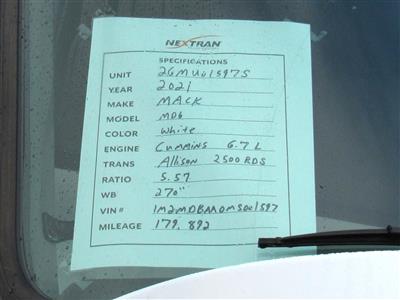 NEXTRAN
SPECIFICATIONS
UNIT 26MU01597S
YEAR 2021
MAKE MACK
MODEL MD6
COLOR White
ENGINE Cummins 6.7 L
TRANS Allison 2500 RDS
RATIO 5.57
WB 270"
VIN # 1M2MDBAA0MS001597
MILEAGE 179,892